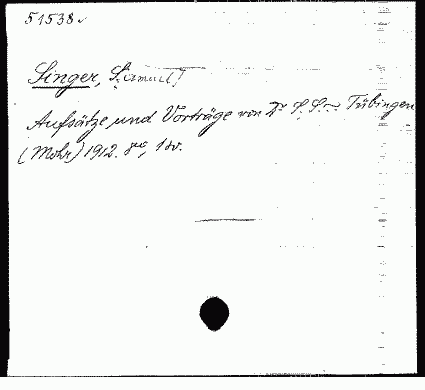 51538
Singer, S.(amuel)
Aufsätze und Vorträge von Dr S. S. Tübingen
(Mohr) 1912. 8°, 1 Bv.